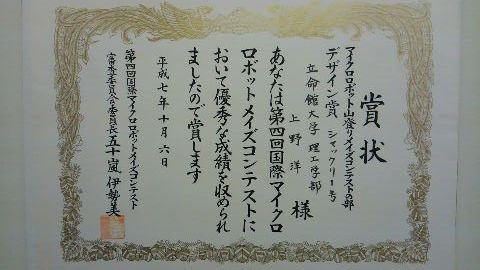 賞状
マイクロロボット山登りメイズコンテストの部
デザイン賞 シャックリ1号
立命館大学 理工学部
上野 洋 様
あなたは第四回国際マイクロ
ロボットメイズコンテストに
おいて優秀な成績を収められ
ましたので賞します
平成七年十月六日
第四回国際マイクロロボットメイズコンテスト
審査委員会委員長 五十嵐 伊勢美